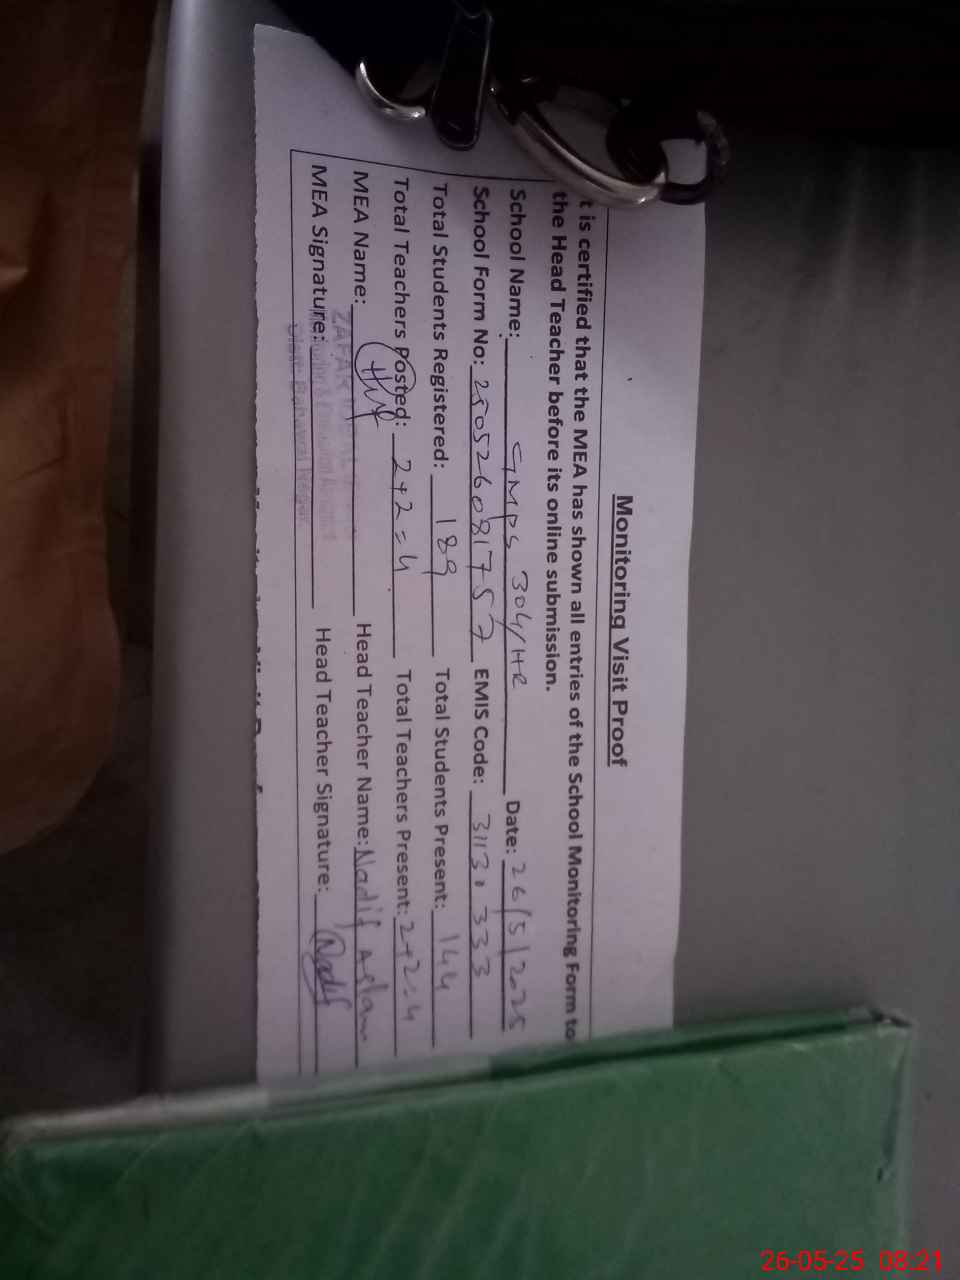 Monitoring Visit Proof
t is certified that the MEA has shown all entries of the School Monitoring Form to
the Head Teacher before its online submission.
School Name: GMPS 304/HR Date: 26/5/2025
School Form No: 250526081757 EMIS Code: 31130333
Total Students Registered: 189 Total Students Present: 144
Total Teachers Posted: 2+2=4 Total Teachers Present: 2+2=4
MEA Name: ZAFAR Head Teacher Name: Nadif Aslam
MEA Signature: Head Teacher Signature: Nadif
26-05-25 08:21